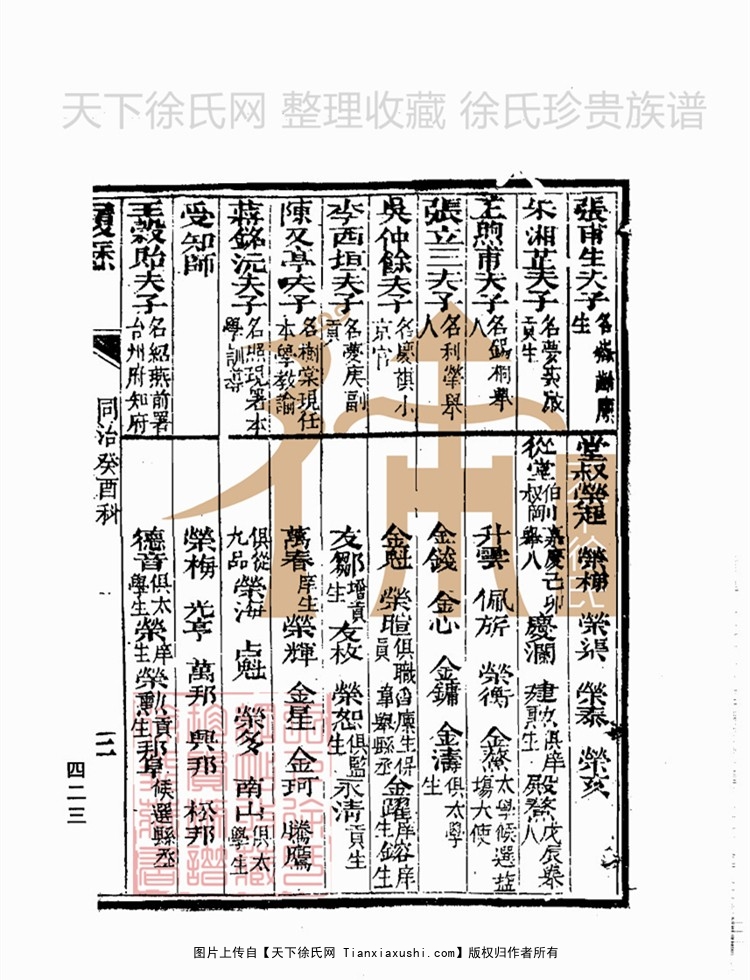 天下徐氏网 整理收藏 徐氏珍贵族谱
張甫生夫子
生
朱湘芷夫子 名夢
貢生
王煦甫夫子 名錫桐舉
人
張立三夫子 名利榮舉
人
吳仲餘夫子 名慶旗小
京官
李西垣夫子 名憂庚副
貢
陳又亭夫子 名樹棠現任
本學教諭
蔣銘沅夫子 名照現署本
學訓導
受知師
王穀貽夫子 名紹燕前署
台州府知府
履歷
同治癸酉科
三
堂叔榮起 榮梯 榮渠 榮泰 榮亥
從堂叔
伯 嘉慶己卯
舉人
慶瀾 建 俱庠
生 戊辰舉
人
升雲 佩旂 榮衡 金 太學候選鹽
場大使
金錢 金心 金鏞 金濤 俱太學
生
金魁 榮 俱職
員 廩生保
舉縣丞 金躍 庠
生 庠
生
友鄒 增貢
生 友枚 榮恕 俱監
生 永清 貢
生
萬春 庠
生 榮輝 金星 金珂 騰鷹
俱從
九品 榮海 占魁 榮多 南山 俱太
學生
榮梅 光亨 萬邦 興邦 松邦
德音 俱太
學生 榮 庠
生 榮 貢
生 邦阜 候選縣丞
四二三
图片上传自【天下徐氏网 Tianxiaxushi.com】版权归作者所有